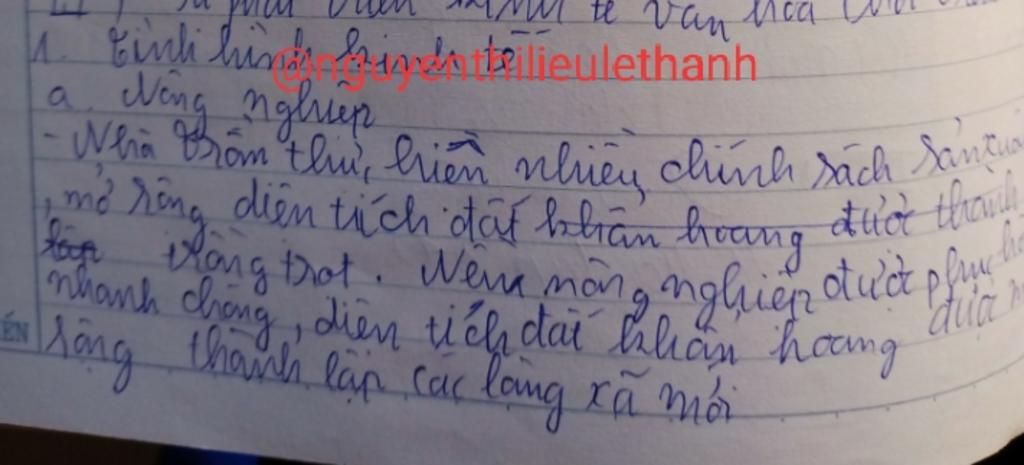 sự phát triển kinh tế văn hóa
1. tình hình kinh tế
@nguyenthilieulethanh
a. Nông nghiệp
- Nhà trần thực hiện nhiều chính sách sản xuất
, mở rộng diện tích đất khẩn hoang được thành
lập trồng trọt. Nên nông nghiệp được phục hồi
nhanh chóng, diện tích đất khẩn hoang được
ẾN
rộng thành lập các làng xã mới